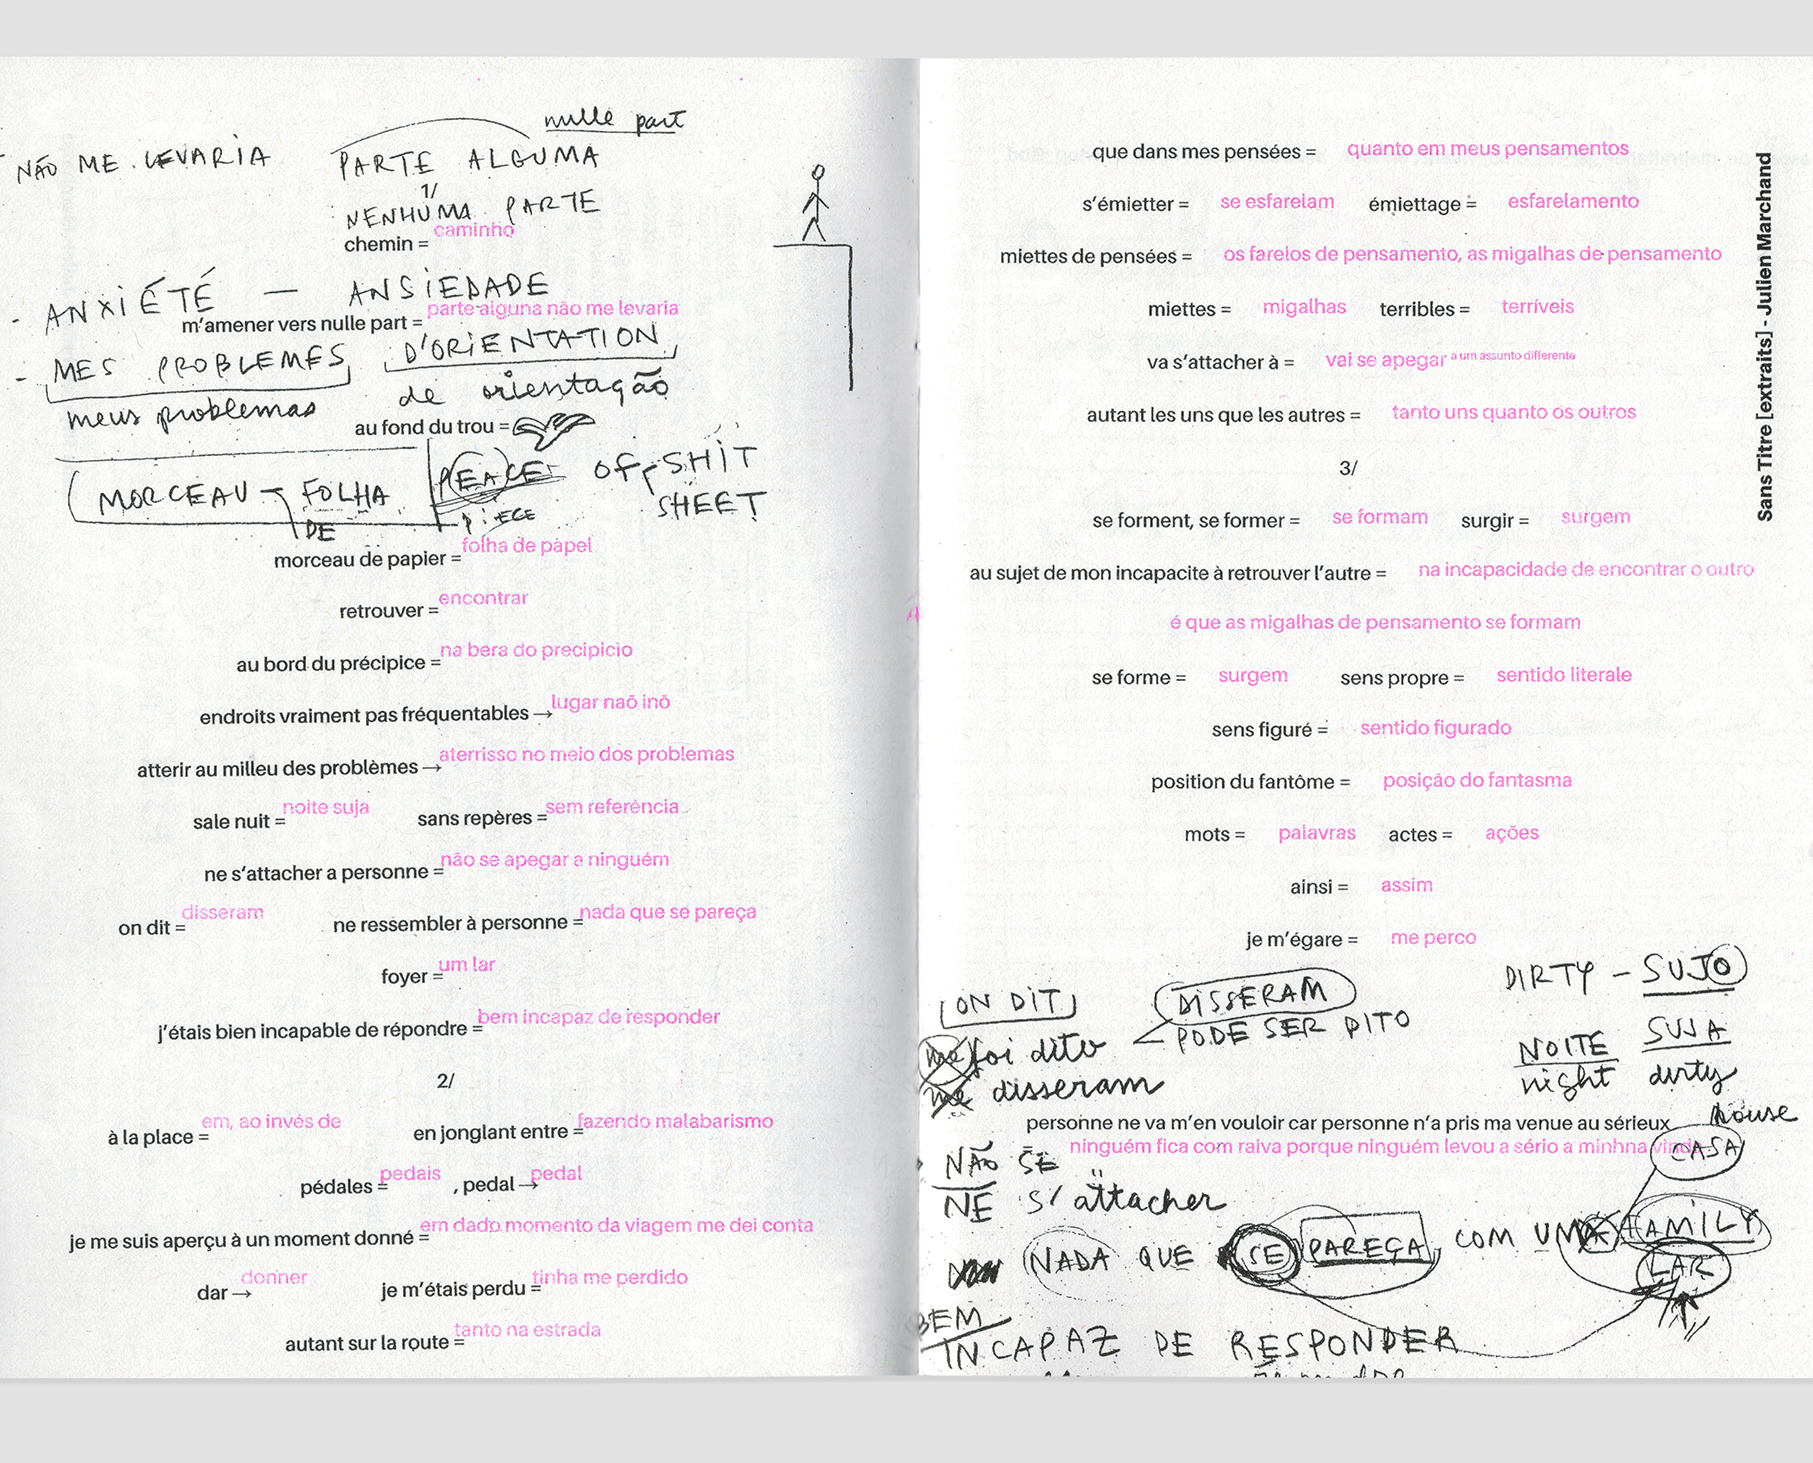 nulle part
NÃO ME LEVARIA PARTE ALGUMA
1/
NENHUMA PARTE
chemin = caminho
- ANXIÉTÉ — ANSIEDADE
m'amener vers nulle part = parte alguna não me levaria
- MES PROBLEMES D'ORIENTATION
meus problemas de orientação
au fond du trou =
MORCEAU - FOLHA DE
PEACE OFF SHIT
PIECE SHEET
morceau de papier = folha de papel
retrouver = encontrar
au bord du précipice = na bera do precipicio
endroits vraiment pas fréquentables → lugar naõ inõ
atterir au milleu des problèmes → aterrisso no meio dos problemas
sale nuit = noite suja sans repères = sem referência
ne s'attacher a personne = não se apegar a ninguém
on dit = disseram ne ressembler à personne = nada que se pareça
foyer = um lar
j'étais bien incapable de répondre = bem incapaz de responder
2/
à la place = em, ao invés de en jonglant entre = fazendo malabarismo
pédales = pedais , pedal → pedal
je me suis aperçu à un moment donné = em dado momento da viagem me dei conta
dar → donner je m'étais perdu = tinha me perdido
autant sur la route = tanto na estrada
que dans mes pensées = quanto em meus pensamentos
s'émietter = se esfarelam émiettage = esfarelamento
miettes de pensées = os farelos de pensamento, as migalhas de pensamento
miettes = migalhas terribles = terríveis
va s'attacher à = vai se apegar a um assunto differente
autant les uns que les autres = tanto uns quanto os outros
3/
se forment, se former = se formam surgir = surgem
au sujet de mon incapacite à retrouver l'autre = na incapacidade de encontrar o outro
é que as migalhas de pensamento se formam
se forme = surgem sens propre = sentido literale
sens figuré = sentido figurado
position du fantôme = posição do fantasma
mots = palavras actes = ações
ainsi = assim
je m'égare = me perco
Sans Titre [extraits] - Julien Marchand
DIRTY - SUJO
ON DIT DISSERAM
PODE SER DITO
me foi dito
me disseram
NOITE SUJA
night dirty
personne ne va m'en vouloir car personne n'a pris ma venue au sérieux
house
ninguém fica com raiva porque ninguém levou a sério a minhna vinda
CASA
NÃO SE
NE s'attacher
NADA QUE SE PAREÇA COM UMA FAMILY
LAR
BEM
INCAPAZ DE RESPONDER